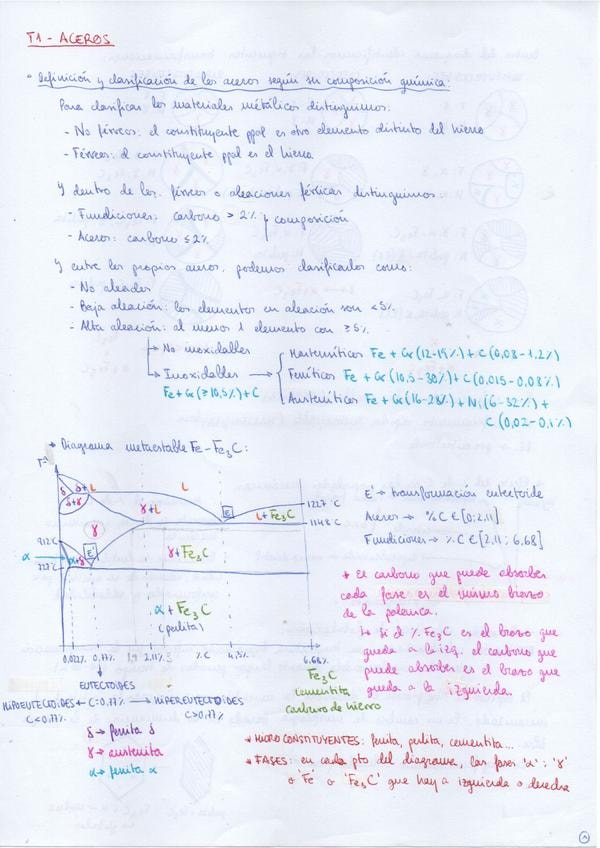 T1 - ACEROS
• Definición y clasificación de los aceros según su composición química:
Para clasificar los materiales metálicos distinguimos:
- No férreos: el constituyente ppal es otro elemento distinto del hierro
- Férreos: el constituyente ppal es el hierro
Y dentro de los férreos o aleaciones férricas distinguimos:
- Fundiciones: carbono > 2% } composición
- Aceros: carbono ≤ 2%
Y entre los propios aceros, podemos clasificarlos como:
- No aleados
- Baja aleación: los elementos en aleación son < 5%
- Alta aleación: al menos 1 elemento con ≥ 5%.
→ No inoxidables
→ Inoxidables →
Fe + Cr (≥ 10,5%) + C
Martensíticos Fe + Cr (12-19%) + C (0,08-1,2%)
Ferríticos Fe + Cr (10,5-30%) + C (0.015-0.08%)
Austeníticos Fe + Cr (16-28%) + Ni (6-32%) +
C (0,02-0,1%)
* Diagrama metaestable Fe-Fe3C:
Tª
δ
δ+L
L
δ+γ
γ+L
E
L+Fe3C
1227°C
1148°C
γ
912°C
α
α+γ
E'
γ+Fe3C
727°C
α + Fe3C
(perlita)
0,022% 0,77% 1,9 2,11% % C 4,3% 6,68%
E' → transformación eutectoide
Aceros → %C ∈ [0; 2,11]
Fundiciones → % C ∈ [2,11; 6,68]
* El carbono que puede absorber
cada fase es el mismo brazo
de la palanca.
↳ si el % Fe3C es el brazo que
queda a la izq. el carbono que
puede absorber es el brazo que
queda a la izquierda.
Fe3C
cementita
carburo de hierro
EUTECTOIDES
HIPOEUTECTOIDES ← C=0,77% → HIPEREUTECTOIDES
C<0,77%
C>0,77%
δ → ferrita δ
γ → austenita
α → ferrita α
* MICROCONSTITUYENTES: ferrita, perlita, cementita...
* FASES: en cada pto del diagrama, las fases 'α' : 'γ'
o 'Fe' o 'Fe3C' que hay a izquierda o derecha